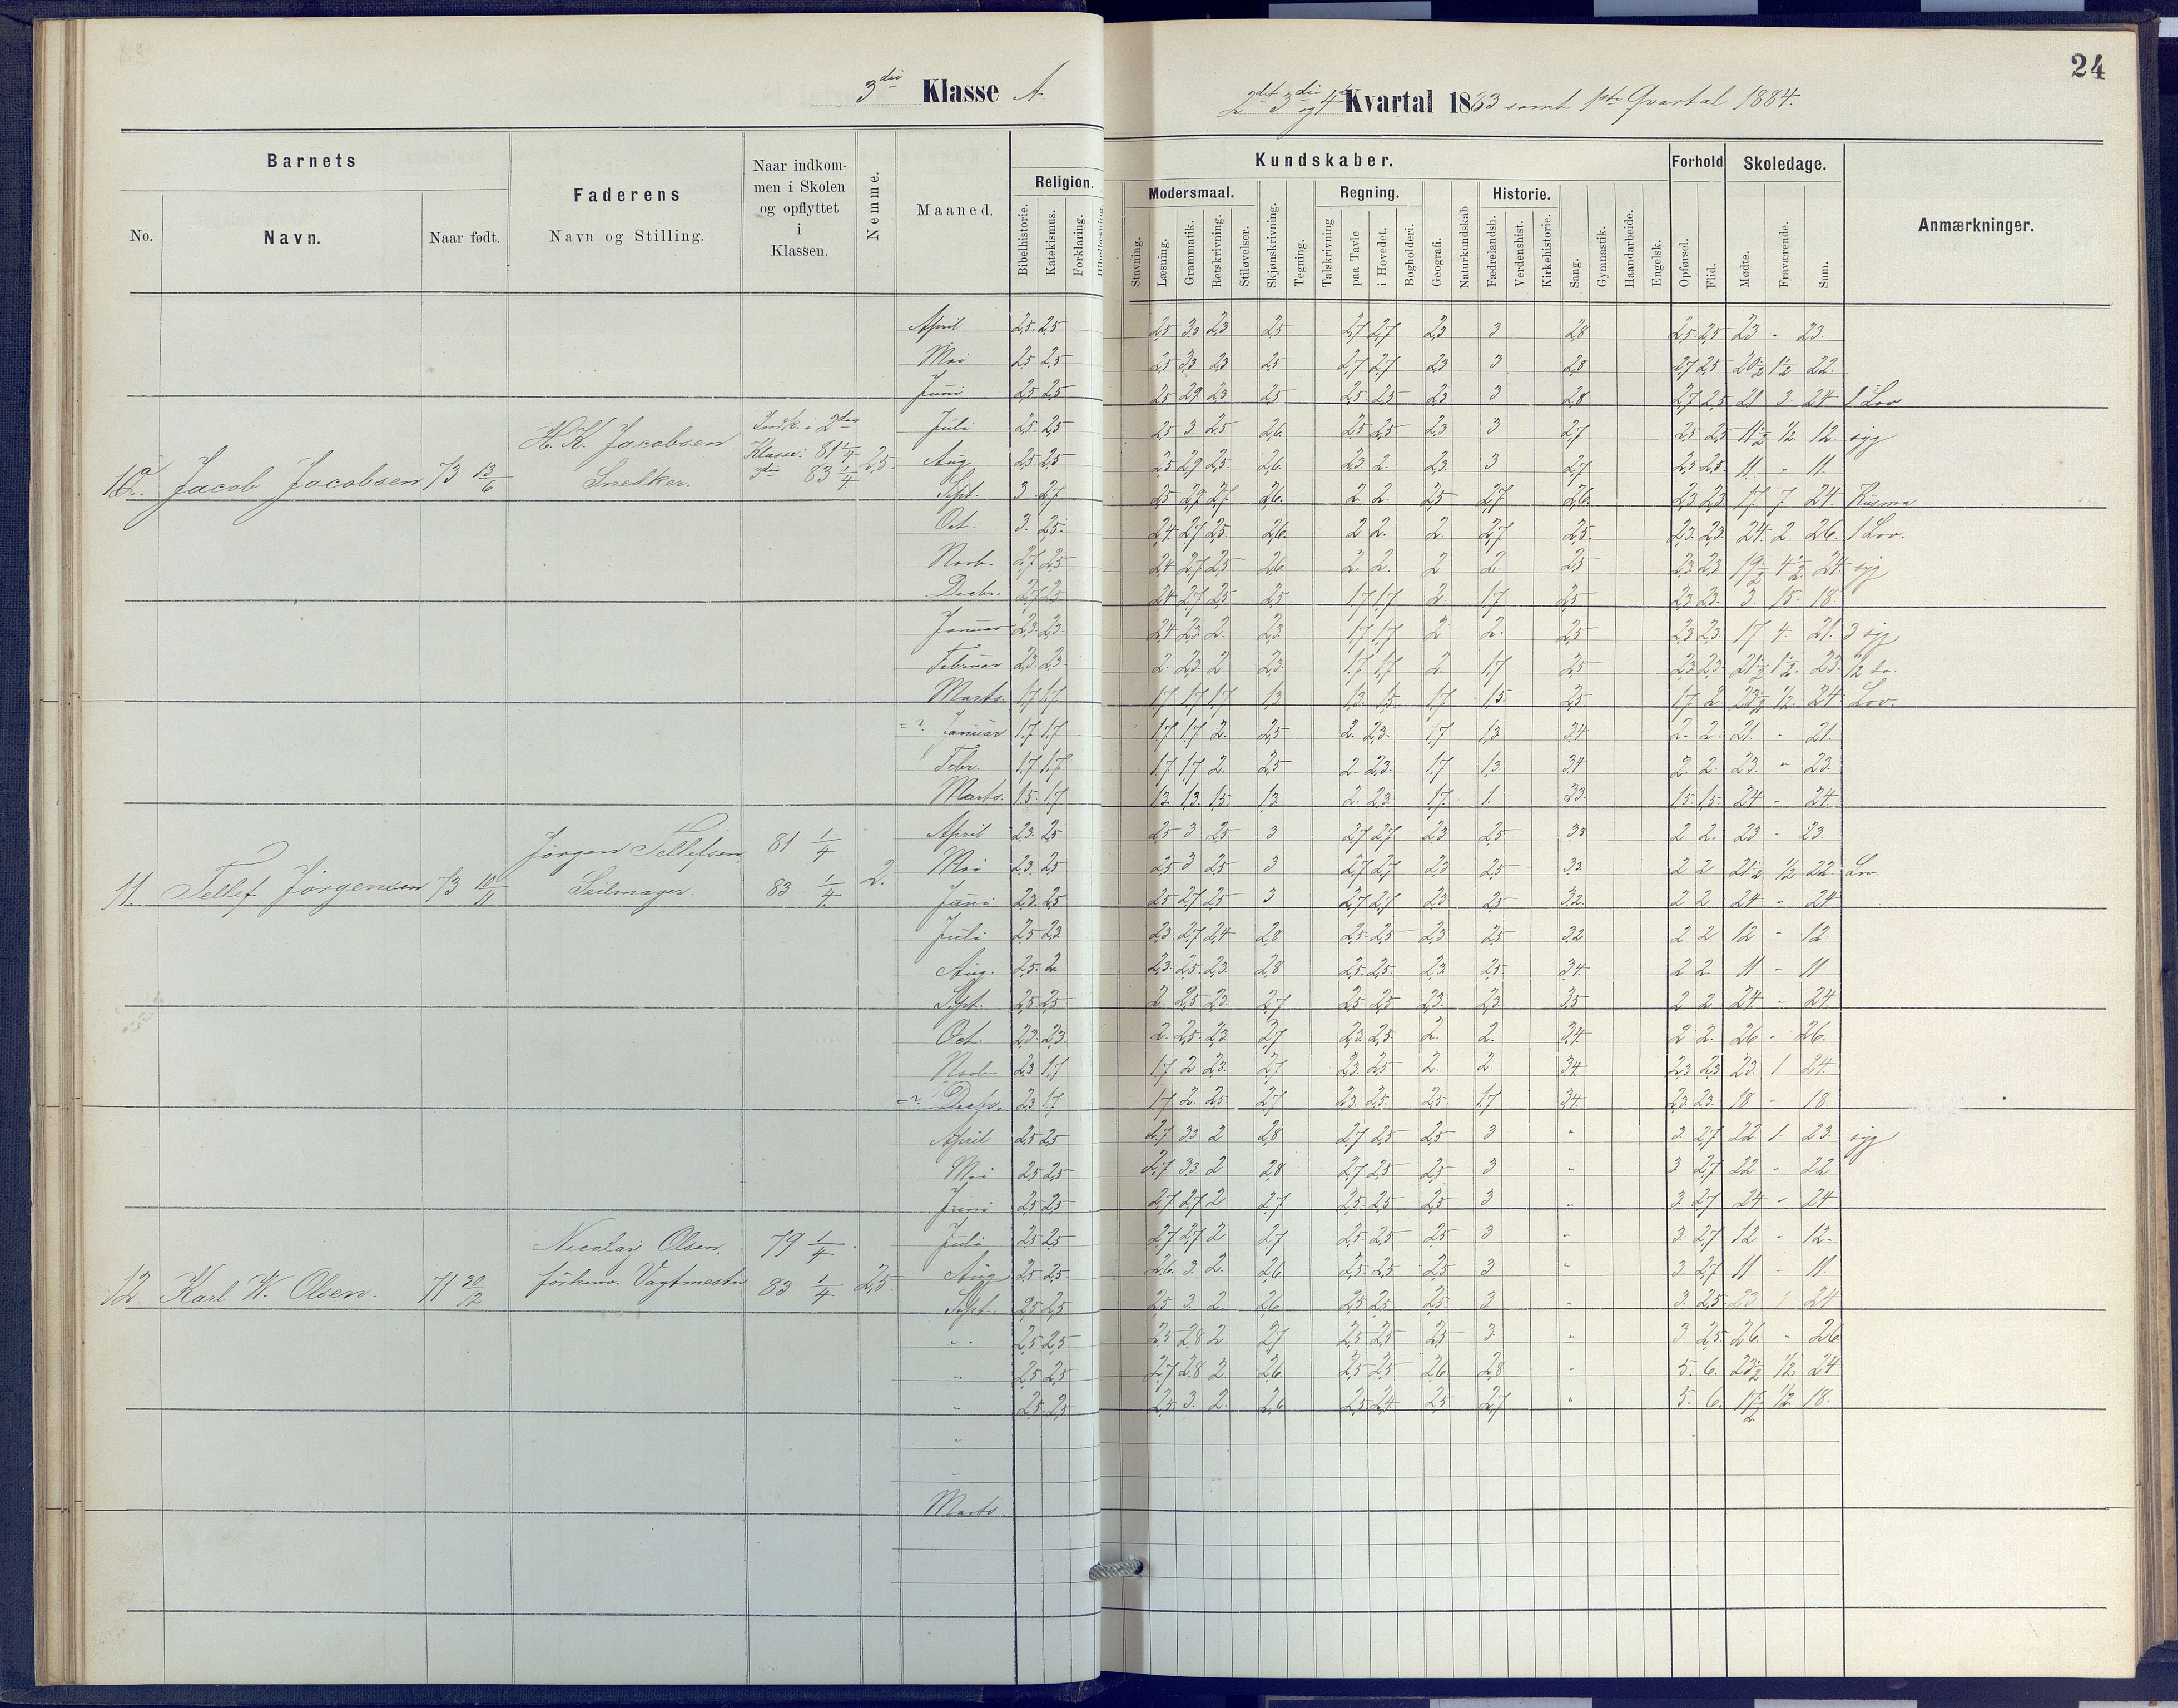 24
3die Klasse A.
2det 3die og 4de Kvartal 1883 samt 1ste Qvartal 1884.
Barnets
Faderens
Naar indkommen i Skolen og opflyttet i Klassen.
Nemme.
Maaned.
Kundskaber.
Forhold
Skoledage.
Anmærkninger.
No.
Navn.
Naar født.
Navn og Stilling.
Religion.
Modersmaal.
Regning.
Historie.
Bibelhistorie.
Katekismus.
Forklaring.
Bibellæsning.
Stavning.
Læsning.
Grammatik.
Retskrivning.
Stiløvelser.
Skjønskrivning.
Tegning.
Talskrivning
paa Tavle
i Hovedet.
Bogholderi.
Geografi.
Naturkundskab
Fædrelandsh.
Verdenshist.
Kirkehistorie.
Sang.
Gymnastik.
Haandarbeide.
Engelsk.
Opførsel.
Flid.
Mødte.
Fraværende.
Sum.
April 2,5 2,5 2,5 3,3 2,3 2,5 2,7 2,7 2,3 3 2,8 2,5 2,5 23 - 23.
Mai 2,5 2,5 2,5 3,3 2,3 2,5 2,7 2,7 2,3 3 2,8 2,7 2,5 20 1/2 1 1/2 22.
Juni 2,5 2,5 2,5 2,9 2,3 2,5 2,5 2,5 2,3 3 2,8 2,7 2,5 21 3 24 1 Lov
Juli 2,5 2,5 2,5 3 2,5 2,6 2,5 2,5 2,3 3 2,7 2,5 2,5 11 1/2 1/2 12. syg
10. Jacob Jacobsen 73 13/6 H. K. Jacobsen Snedker. Indk. i 2den Klasse: 81 1/4 3die 83 1/4 2,5.
Aug 2,5 2,5 2,5 2,9 2,5 2,6 2,3 2. 2,3. 3 2,7 2,5 2,5 11 - 11.
Sept. 3 2,7 2,5 2,9 2,7 2,6 2 2. 2,5 2,7 2,6 2,3 2,3 17 7 24
Oct. 3. 2,5 2,4 2,7 2,5 2,6 2 2. 2. 2,7 2,5 2,3 2,3 24 2. 26. 1 Lov.
Novb. 2,7 2,5 2,4 2,7 2,5 2,6 2. 2. 2 2. 2,5 2,3 2,3 19 1/2 4 1/2 24 syg
Decbr. 2,7 2,5 2,4 2,7 2,5 2,5 1,7 1,7 2. 1,7 2,5 2,3 2,3 3. 15 18.
Januar 2,3 2,3 2,4 2,3 2. 2,3 1,7 1,7 2 2. 2,5 2,3 2,3 17 4. 21. 3 syg
Februar 2,3 2,3 2. 2,3 2 2,3 1,7 1,7 2. 1,7 2,5 2,3 2,3 21 1/2 1 1/2 23.
Marts. 1,7 1,7 1,7 1,7 1,7 1,3 1,3 1,5 1,7 1,5 2,5 1,7 2 23 1/2 1/2 24 Lov.
Januar 1,7 1,7 1,7 1,7 2. 2,5 2. 2,3. 1,7 1,3 3,4 2. 2. 21. - 21.
Febr. 1,7 1,7 1,7 1,7 2. 2,5 2. 2,3. 1,7 1,3 3,4 2. 2. 23. - 23.
Marts. 1,5 1,7 1,3 1,3 1,5 1,3 2. 2,3 1,7 1. 3,3 1,5 1,5 24 - 24.
April 2,3 2,5 2,5 3 2,5 3 2,7 2,7 2,3 2,5 3,3 2 2. 23 - 23.
11. Tellef Jørgensen 73 10/11 Jørgen Tellefsen Seilmager. 81 1/4 83 1/4 2.
Mai 2,3 2,5 2,5 3 2,5 3 2,7 2,7 2,3 2,5 3,3 2 2 21 1/2 1/2 22 Lov
Juni 2,3 2,5 2,5 2,7 2,5 3 2,7 2,7 2,3 2,5 3,2 2 2 24 - 24
Juli 2,5 2,3 2,3 2,7 2,4 2,8 2,5 2,5 2,3 2,5 3,2 2 2 12 - 12.
Aug. 2,5 2 2,3 2,5 2,3 2,8 2,5 2,5 2,3 2,5 3,4 2 2 11 - 11
Sept. 2,5 2,5 2. 2,5 2,3 2,7 2,5 2,5 2,3. 2,3 3,5 2 2 24 - 24.
Oct. 2,3 2,3 2. 2,5 2,3 2,7 2,3 2,5 2. 2. 3,4 2 2. 26 - 26.
Novb 2,3 1,7 1,7 2 2,3 2,7 2,3 2,5 2. 2. 3,4 2,3 2,3 23. 1. 24.
Decbr. 2,3 1,7 1,7 2. 2,5 2,7 2,3 2,5 2,5 1,7 3,4 2,3 2,3 18 - 18.
April 2,5 2,5 2,7 3,3 2 2,8 2,7 2,5 2,5 3 - 3. 2,7 22. 1. 23. syg
Mai 2,5 2,5 2,7 3,3 2 2,8 2,7 2,5 2,5 3 - 3 2,7 22 - 22
Juni 2,5 2,5 2,7 2,7 2 2,7 2,5 2,5 2,5 3 - 3. 2,7 24 - 24
Juli 2,5 2,5 2,7 2,7 2 2,7 2,5 2,5 2,5 3 - 3. 2,7 12 - 12.
12 Karl W. Olsen. 71 30/12 Nicolay Olsen. forhenv. Vagtmester 79 1/4 83 1/4 2,5
Aug 2,5 2,5 2,6 3. 2. 2,6 2,5 2,5 2,5 3 - 3. 2,7 11 - 11.
Sept. 2,5 2,5 2,5 3. 2. 2,6 2,5 2,5 2,5 3 - 3. 2,5 23 1 24
" 2,5 2,5 2,5 2,8 2 2,7 2,5 2,5 2,5 3. - 3. 2,5 26 - 26
" 2,5 2,5 2,7 2,8 2. 2,6 2,5 2,5 2,6 2,8 - 5. 6. 23 1/2 1/2 24
" 2,5 2,5 2,5 3. 2. 2,6 2,5 2,4 2,5 2,7 - 5. 6. 17 1/2 1/2 18.
Marts.